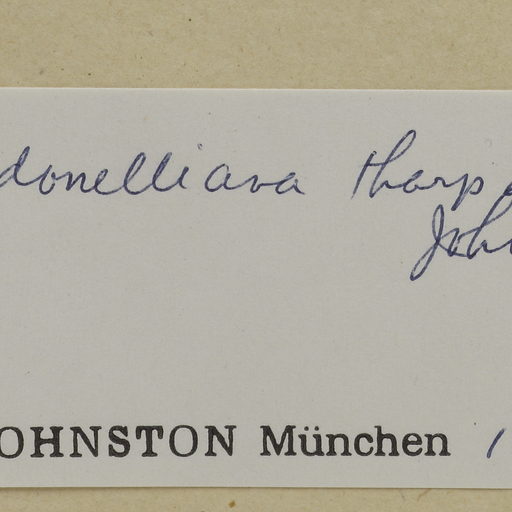 donelliana tharp
Joh
OHNSTON München 1